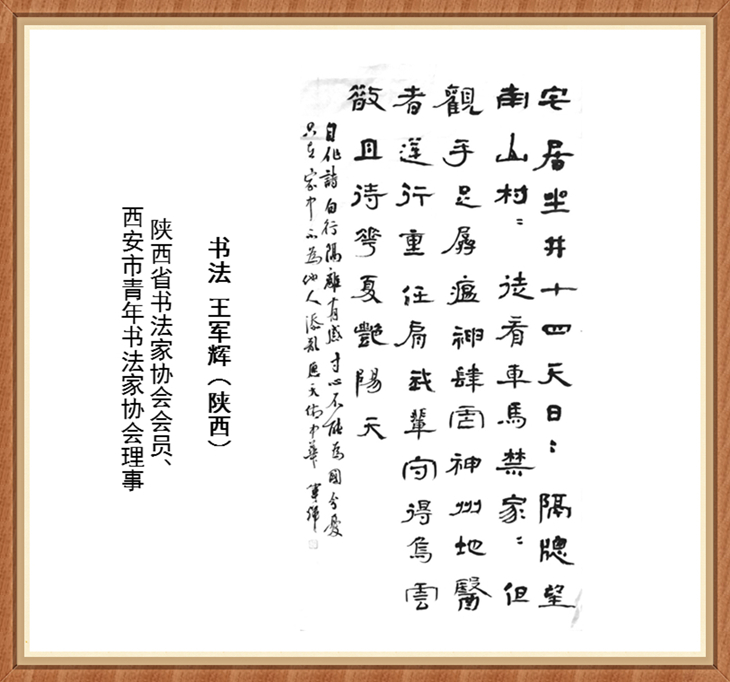 宅居坐井十四天日〻隔牕望
南山村〻徒看車馬禁家〻但
觀手足孱瘟神肆虐神州地醫
者逆行重任肩我輩守得烏雲
散且待華夏艷陽天
自作詩自行隔離有感寸心不能為國分憂
只在家中不為他人添亂愿天佑中華 軍輝
书法 王军辉（陕西）
陕西省书法家协会会员、
西安市青年书法家协会理事